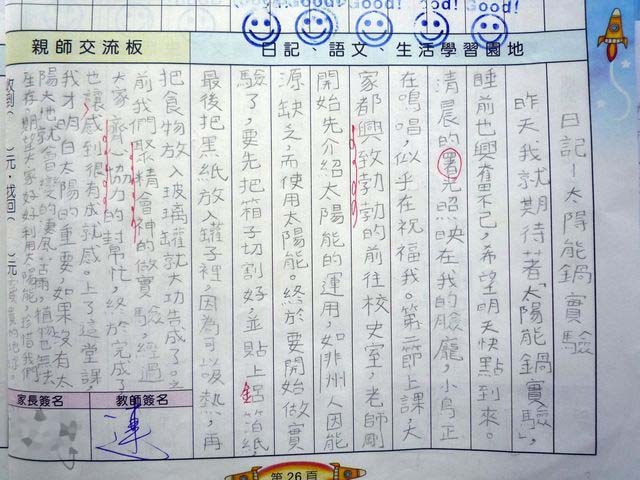 Good!
Good!
Good!
親師交流板
日記、語文、生活學習園地
日記—太陽能鍋實驗
昨天我就期待著「太陽能鍋實驗」，
睡前也興奮不已，希望明天快點到來。
清晨的署光照映在我的臉龐，小鳥正
在鳴唱，似乎在祝福我。第二節上課，大
家都興致勃勃的前往校史室，老師剛
開始先介紹太陽能的運用，如非洲人因能
源缺乏，而使用太陽能。終於要開始做實
驗了，要先把箱子切割好，並貼上鋁箔紙，
最後把黑紙放入罐子裡，因為可以吸熱，再
把食物放入玻璃罐就大功告成了。之
前我們聚精會神的做實驗，經過
大家齊心協力的幫忙，終於完成了
也讓感到很有成就感。上了這堂課，
我才明白太陽的重要，如果沒有太
陽大地就會變的淒風苦雨，植物也無法
生存，期廿大家好好利用太陽能，珍惜我們
家長簽名
教師簽名
連
第26頁